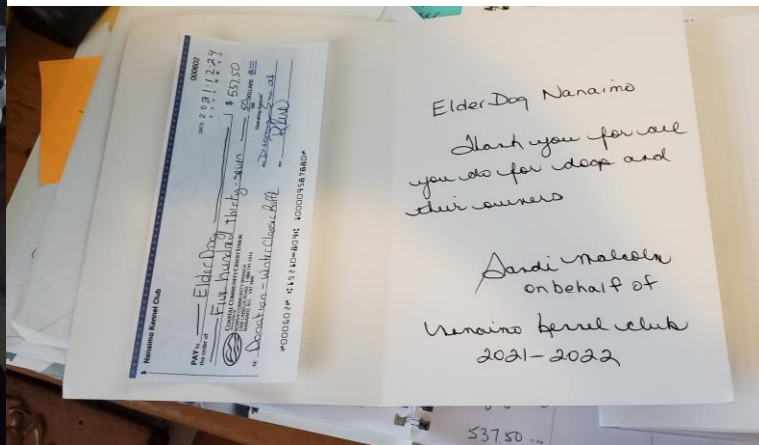 Nanaimo Kennel Club
000602
DATE 2021-12-29
PAY to the order of ElderDog $ 537.50
Five hundred thirty-seven 50 DOLLARS
COASTAL COMMUNITY CREDIT UNION
RE Donation - Winter Classic Raffle
ElderDog Nanaimo
Thank you for all
you do for dogs and
their owners
Sandi Malcolm
on behalf of
Nanaimo Kennel Club
2021-2022
537.50